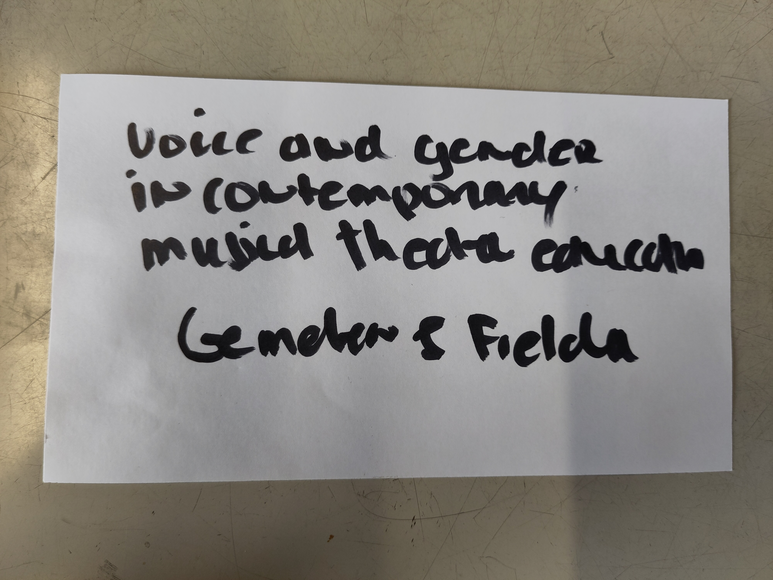 Voice and gender
in contemporary
musical theatre education
& Fielder